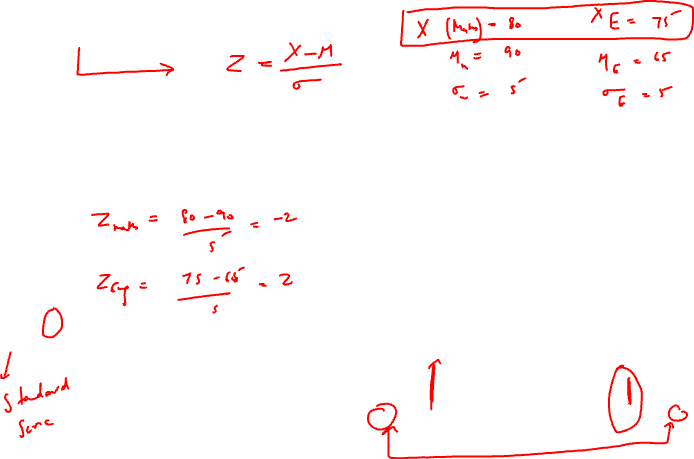 X (Maths) = 80 X E = 75
Z = X-M / σ
M_m = 90 M_E = 65
σ_m = 5 σ_E = 5
Z_maths = 80-90 / 5 = -2
Z_Eng = 75-65 / 5 = 2
Standard
Score